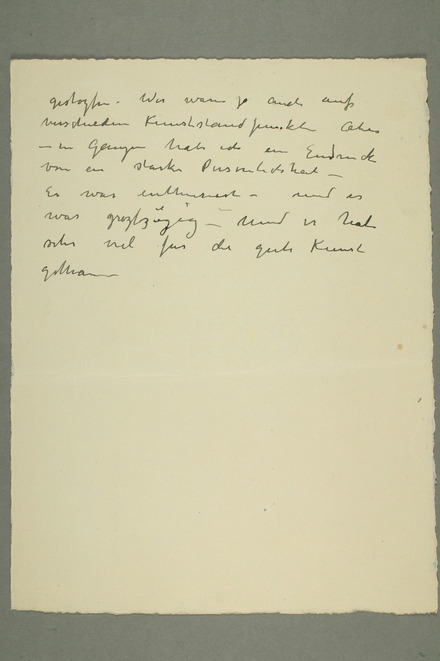 gestorben. Wir waren ja auch auf
verschieden Kunststandpunkten Aber
– in Ganzen hatte ich ein Eindruck
von ein starke Personlichkeit –
Er war enthusiast – und er
war grozfzügig – und er hat
sehr viel für die gute Kunst
gethan –